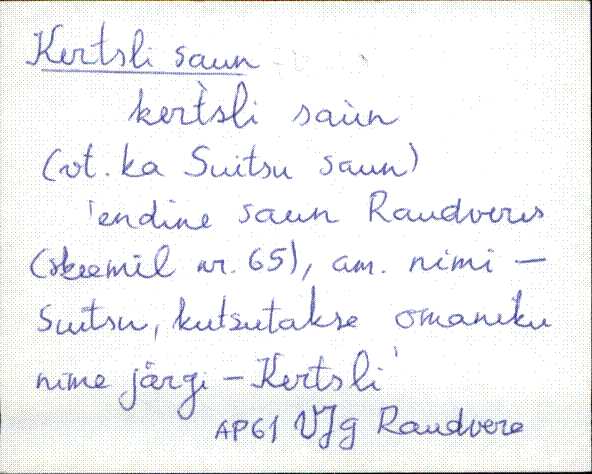 Kertsli saun
kert̀sli saùn
(vt. ka Suitsu saun)
'endine saun Raudveres
(skeemil nr. 65), am. nimi –
Suitsu, kutsutakse omaniku
nime järgi – Kertsli'
AP61 VJg Raudvere